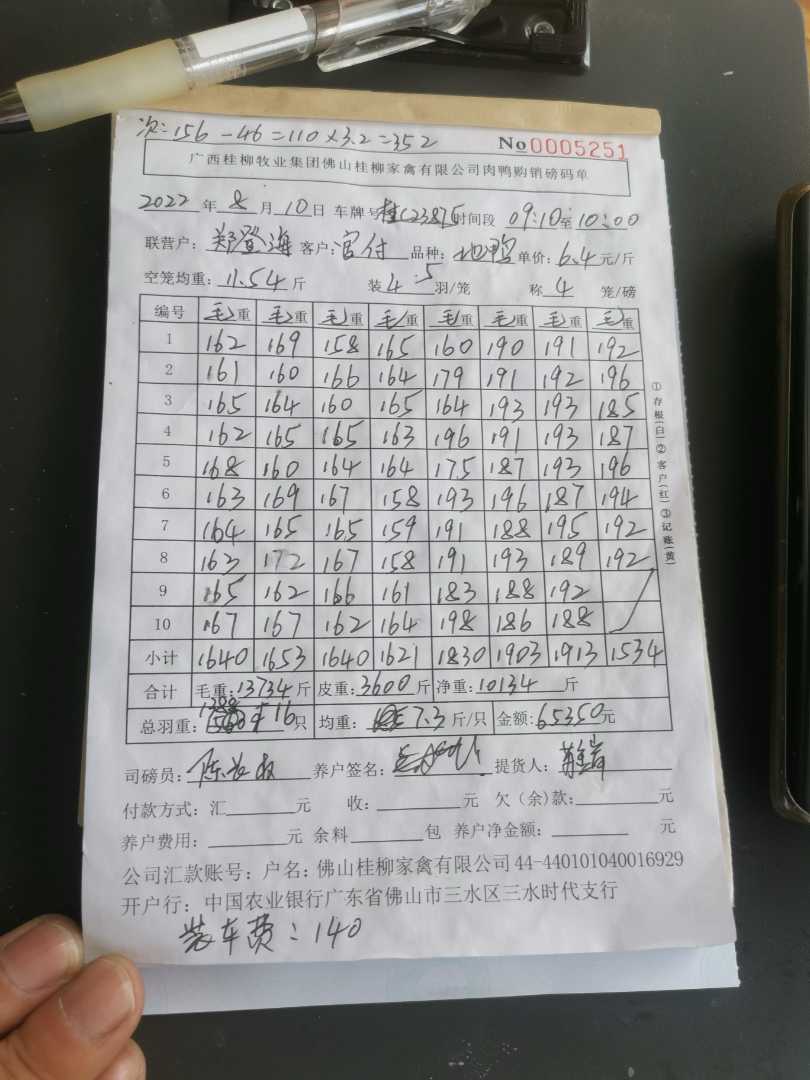 次: 156 - 46 = 110 × 3.2 = 352
No 0005251
广西桂柳牧业集团佛山桂柳家禽有限公司肉鸭购销磅码单
2022 年 8 月 10 日 车牌号 桂C23875 时间段 09:10 至 10:00
联营户: 郑登海 客户: 官付 品种: 地鸭 单价: 6.4 元/斤
空笼均重: 11.54 斤 装 4.5 羽/笼 称 4 笼/磅
编号 毛重 毛重 毛重 毛重 毛重 毛重 毛重 毛重
1 162 169 158 165 160 190 191 192
2 161 160 166 164 179 191 192 196
3 165 164 160 165 164 193 193 185
4 162 165 165 163 196 191 193 187
5 168 160 164 164 175 187 193 196
6 163 169 167 158 193 196 187 194
7 164 165 165 159 191 188 195 192
8 163 172 167 158 191 193 189 192
9 165 162 166 161 183 188 192
10 167 167 162 164 198 186 188
小计 1640 1653 1640 1621 1830 1903 1913 1534
合计 毛重: 13734 斤 皮重: 3600 斤 净重: 10134 斤
总羽重: 1388 + 16 只 均重: 7.3 斤/只 金额: 65350 元
司磅员: 养户签名: 提货人:
付款方式: 汇 元 收: 元 欠(余)款: 元
养户费用: 元 余料 包 养户净金额: 元
公司汇款账号: 户名: 佛山桂柳家禽有限公司 44-440101040016929
开户行: 中国农业银行广东省佛山市三水区三水时代支行
装车费: 140
①存根(白)②客户(红)③记账(黄)